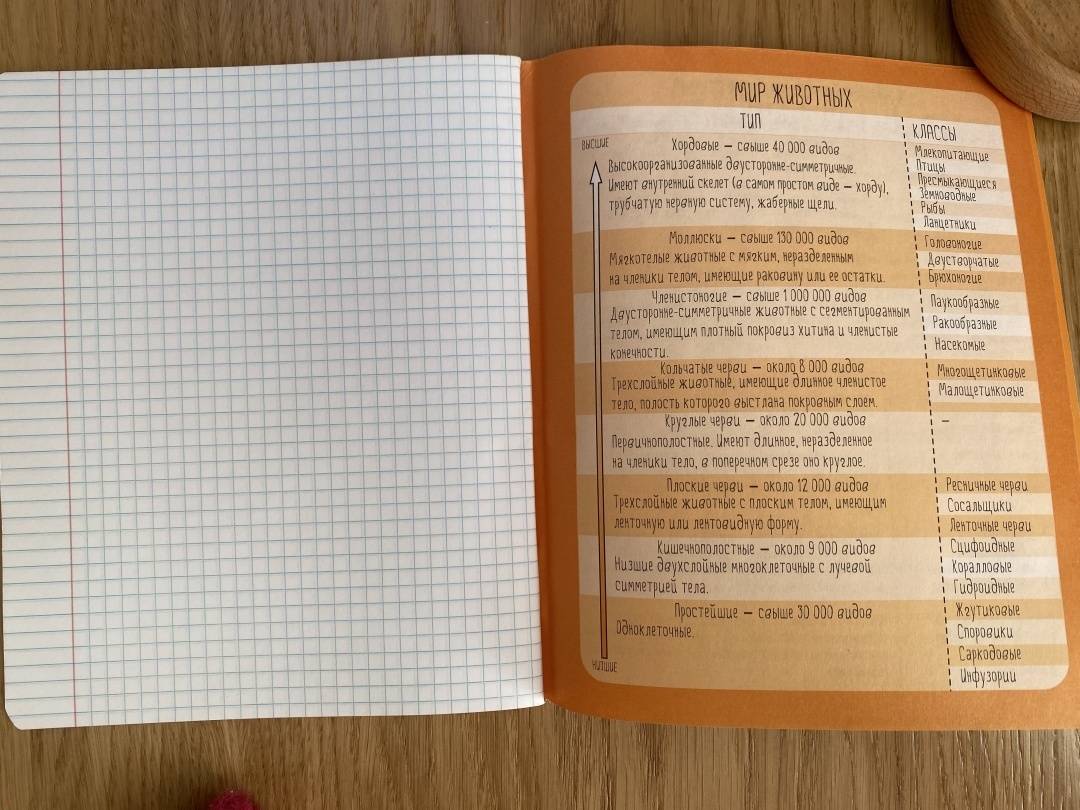 МИР ЖИВОТНЫХ
ТИП
КЛАССЫ
ВЫСШИЕ
Хордовые — свыше 40 000 видов
Высокоорганизованные двусторонне-симметричные.
Имеют внутренний скелет (в самом простом виде — хорду),
трубчатую нервную систему, жаберные щели.
Млекопитающие
Птицы
Пресмыкающиеся
Земноводные
Рыбы
Ланцетники
Моллюски — свыше 130 000 видов
Мягкотелые животные с мягким, неразделенным
на членики телом, имеющие раковину или ее остатки.
Головоногие
Двустворчатые
Брюхоногие
Членистоногие — свыше 1 000 000 видов
Двусторонне-симметричные животные с сегментированным
телом, имеющим плотный покровиз хитина и членистые
конечности.
Паукообразные
Ракообразные
Насекомые
Кольчатые черви — около 8 000 видов
Трехслойные животные, имеющие длинное членистое
тело, полость которого выстлана покровным слоем.
Многощетинковые
Малощетинковые
Круглые черви — около 20 000 видов
Первичнополостные. Имеют длинное, неразделенное
на членики тело, в поперечном срезе оно круглое.
–
Плоские черви — около 12 000 видов
Трехслойные животные с плоским телом, имеющим
ленточную или лентовидную форму.
Ресничные черви
Сосальщики
Ленточные черви
Кишечнополостные — около 9 000 видов
Низшие двухслойные многоклеточные с лучевой
симметрией тела.
Сцифоидные
Коралловые
Гидроидные
Простейшие — свыше 30 000 видов
Одноклеточные.
Жгутиковые
Споровики
Саркодовые
Инфузории
НИТШИЕ